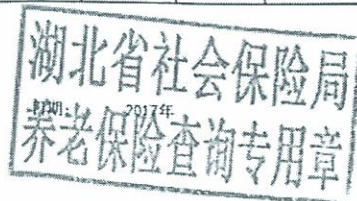 湖北省社会保险局
时间: 2017年
养老保险查询专用章